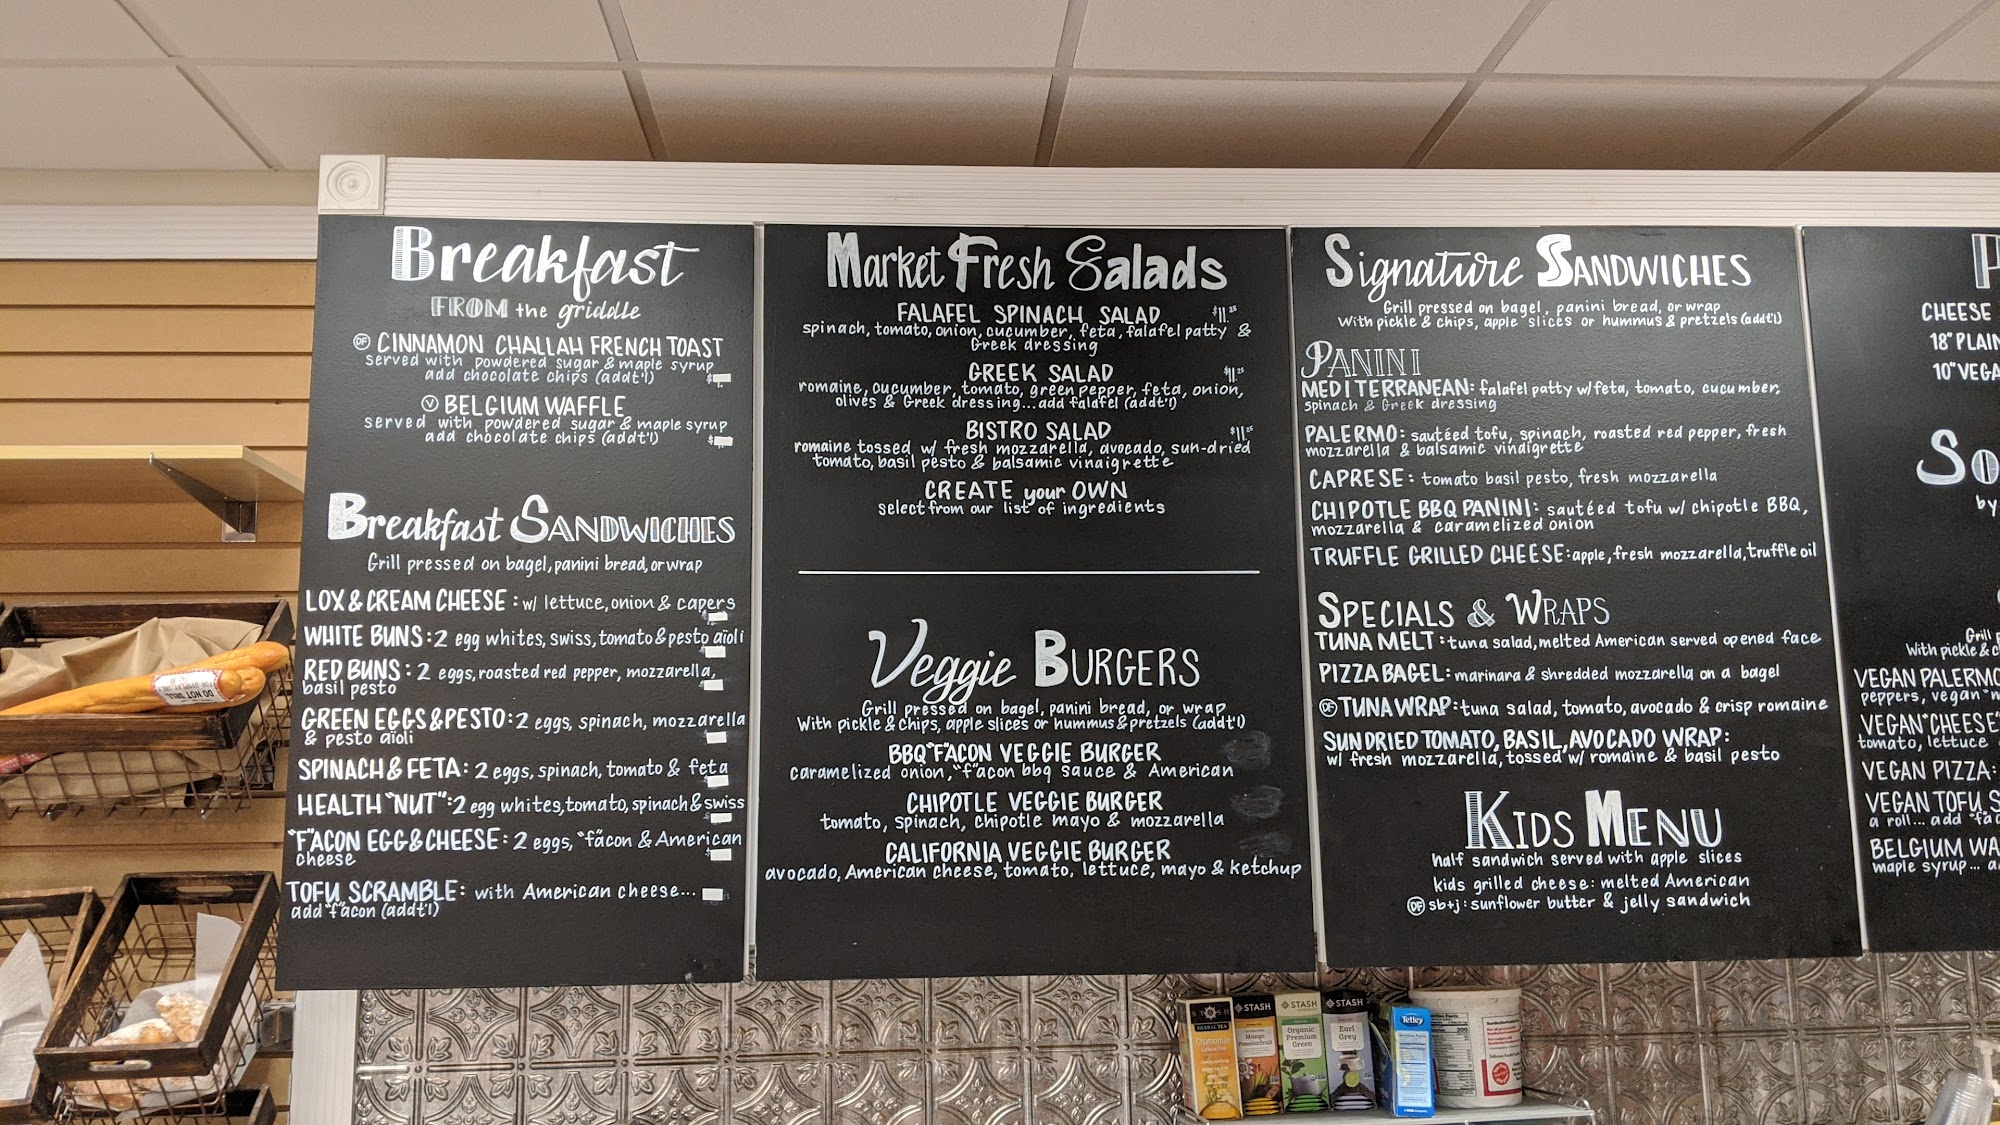 Breakfast
FROM the griddle
DF CINNAMON CHALLAH FRENCH TOAST
served with powdered sugar & maple syrup
add chocolate chips (addt'l) $
V BELGIUM WAFFLE
served with powdered sugar & maple syrup
add chocolate chips (addt'l) $
Breakfast SANDWICHES
Grill pressed on bagel, panini bread, or wrap
LOX & CREAM CHEESE: w/ lettuce, onion & capers
WHITE BUNS: 2 egg whites, swiss, tomato & pesto aïoli
RED BUNS: 2 eggs, roasted red pepper, mozzarella,
basil pesto
GREEN EGGS & PESTO: 2 eggs, spinach, mozzarella
& pesto aïoli
SPINACH & FETA: 2 eggs, spinach, tomato & feta
HEALTH "NUT": 2 egg whites, tomato, spinach & swiss
"F"ACON EGG & CHEESE: 2 eggs, "f"acon & American
cheese
TOFU SCRAMBLE: with American cheese...
add "f"acon (addt'l)
Market Fresh Salads
FALAFEL SPINACH SALAD $11.25
spinach, tomato, onion, cucumber, feta, falafel patty &
Greek dressing
GREEK SALAD $11.25
romaine, cucumber, tomato, green pepper, feta, onion,
olives & Greek dressing... add falafel (addt'l)
BISTRO SALAD $11.25
romaine tossed w/ fresh mozzarella, avocado, sun-dried
tomato, basil pesto & balsamic vinaigrette
CREATE your OWN
select from our list of ingredients
Veggie BURGERS
Grill pressed on bagel, panini bread, or wrap
With pickle & chips, apple slices or hummus & pretzels (addt'l)
BBQ "F"ACON VEGGIE BURGER
caramelized onion, "f"acon bbq sauce & American
CHIPOTLE VEGGIE BURGER
tomato, spinach, chipotle mayo & mozzarella
CALIFORNIA VEGGIE BURGER
avocado, American cheese, tomato, lettuce, mayo & ketchup
Signature SANDWICHES
Grill pressed on bagel, panini bread, or wrap
With pickle & chips, apple slices or hummus & pretzels (addt'l)
PANINI
MEDITERRANEAN: falafel patty w/ feta, tomato, cucumber,
spinach & Greek dressing
PALERMO: sautéed tofu, spinach, roasted red pepper, fresh
mozzarella & balsamic vinaigrette
CAPRESE: tomato basil pesto, fresh mozzarella
CHIPOTLE BBQ PANINI: sautéed tofu w/ chipotle BBQ,
mozzarella & caramelized onion
TRUFFLE GRILLED CHEESE: apple, fresh mozzarella, truffle oil
SPECIALS & WRAPS
TUNA MELT: tuna salad, melted American served opened face
PIZZA BAGEL: marinara & shredded mozzarella on a bagel
DF TUNA WRAP: tuna salad, tomato, avocado & crisp romaine
SUNDRIED TOMATO, BASIL, AVOCADO WRAP:
w/ fresh mozzarella, tossed w/ romaine & basil pesto
KIDS MENU
half sandwich served with apple slices
kids grilled cheese: melted American
DF sb+j: sunflower butter & jelly sandwich
P
CHEESE
18" PLAIN
10" VEGA
So
by
Grill
With pickle & c
VEGAN PALERMO
peppers, vegan "m
VEGAN "CHEESE"
tomato, lettuce
VEGAN PIZZA:
VEGAN TOFU S
a roll... add "fac
BELGIUM WA
maple syrup... a
DO NOT SELL
STASH
HERBAL TEA
Chamomile
STASH
Mango
Passionfruit
STASH
Organic
Premium
Green
STASH
Earl
Grey
Tetley
200